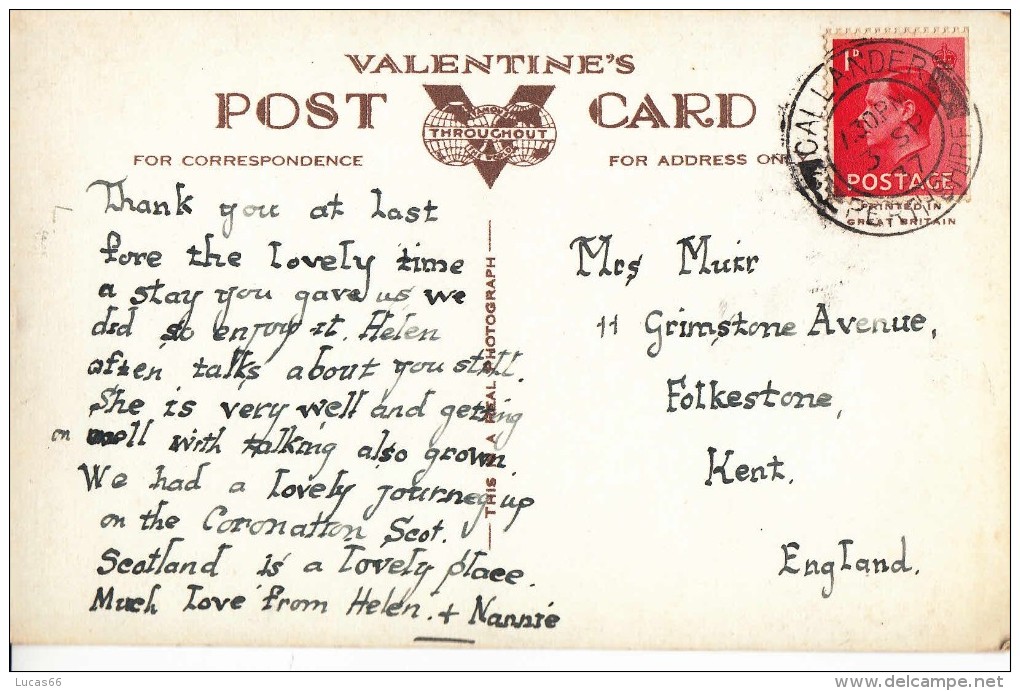 VALENTINE'S
POST CARD
THROUGHOUT
FOR CORRESPONDENCE
FOR ADDRESS ON
1D
POSTAGE
CALLANDER
PERTHSHIRE
1.30PM
3 SP
37
PRINTED IN
GREAT BRITAIN
Thank you at last
fore the lovely time
a stay you gave us we
did so enjoy it. Helen
often talks about you still.
She is very well and getting
on well with talking also grown.
We had a lovely journey up
on the Coronation Scot.
Scotland is a lovely place.
Much Love from Helen. + Nannie
THIS IS A REAL PHOTOGRAPH
Mrs Muir
11 Grimstone Avenue,
Folkestone,
Kent.
England.
Lucas66
©delcampe.net